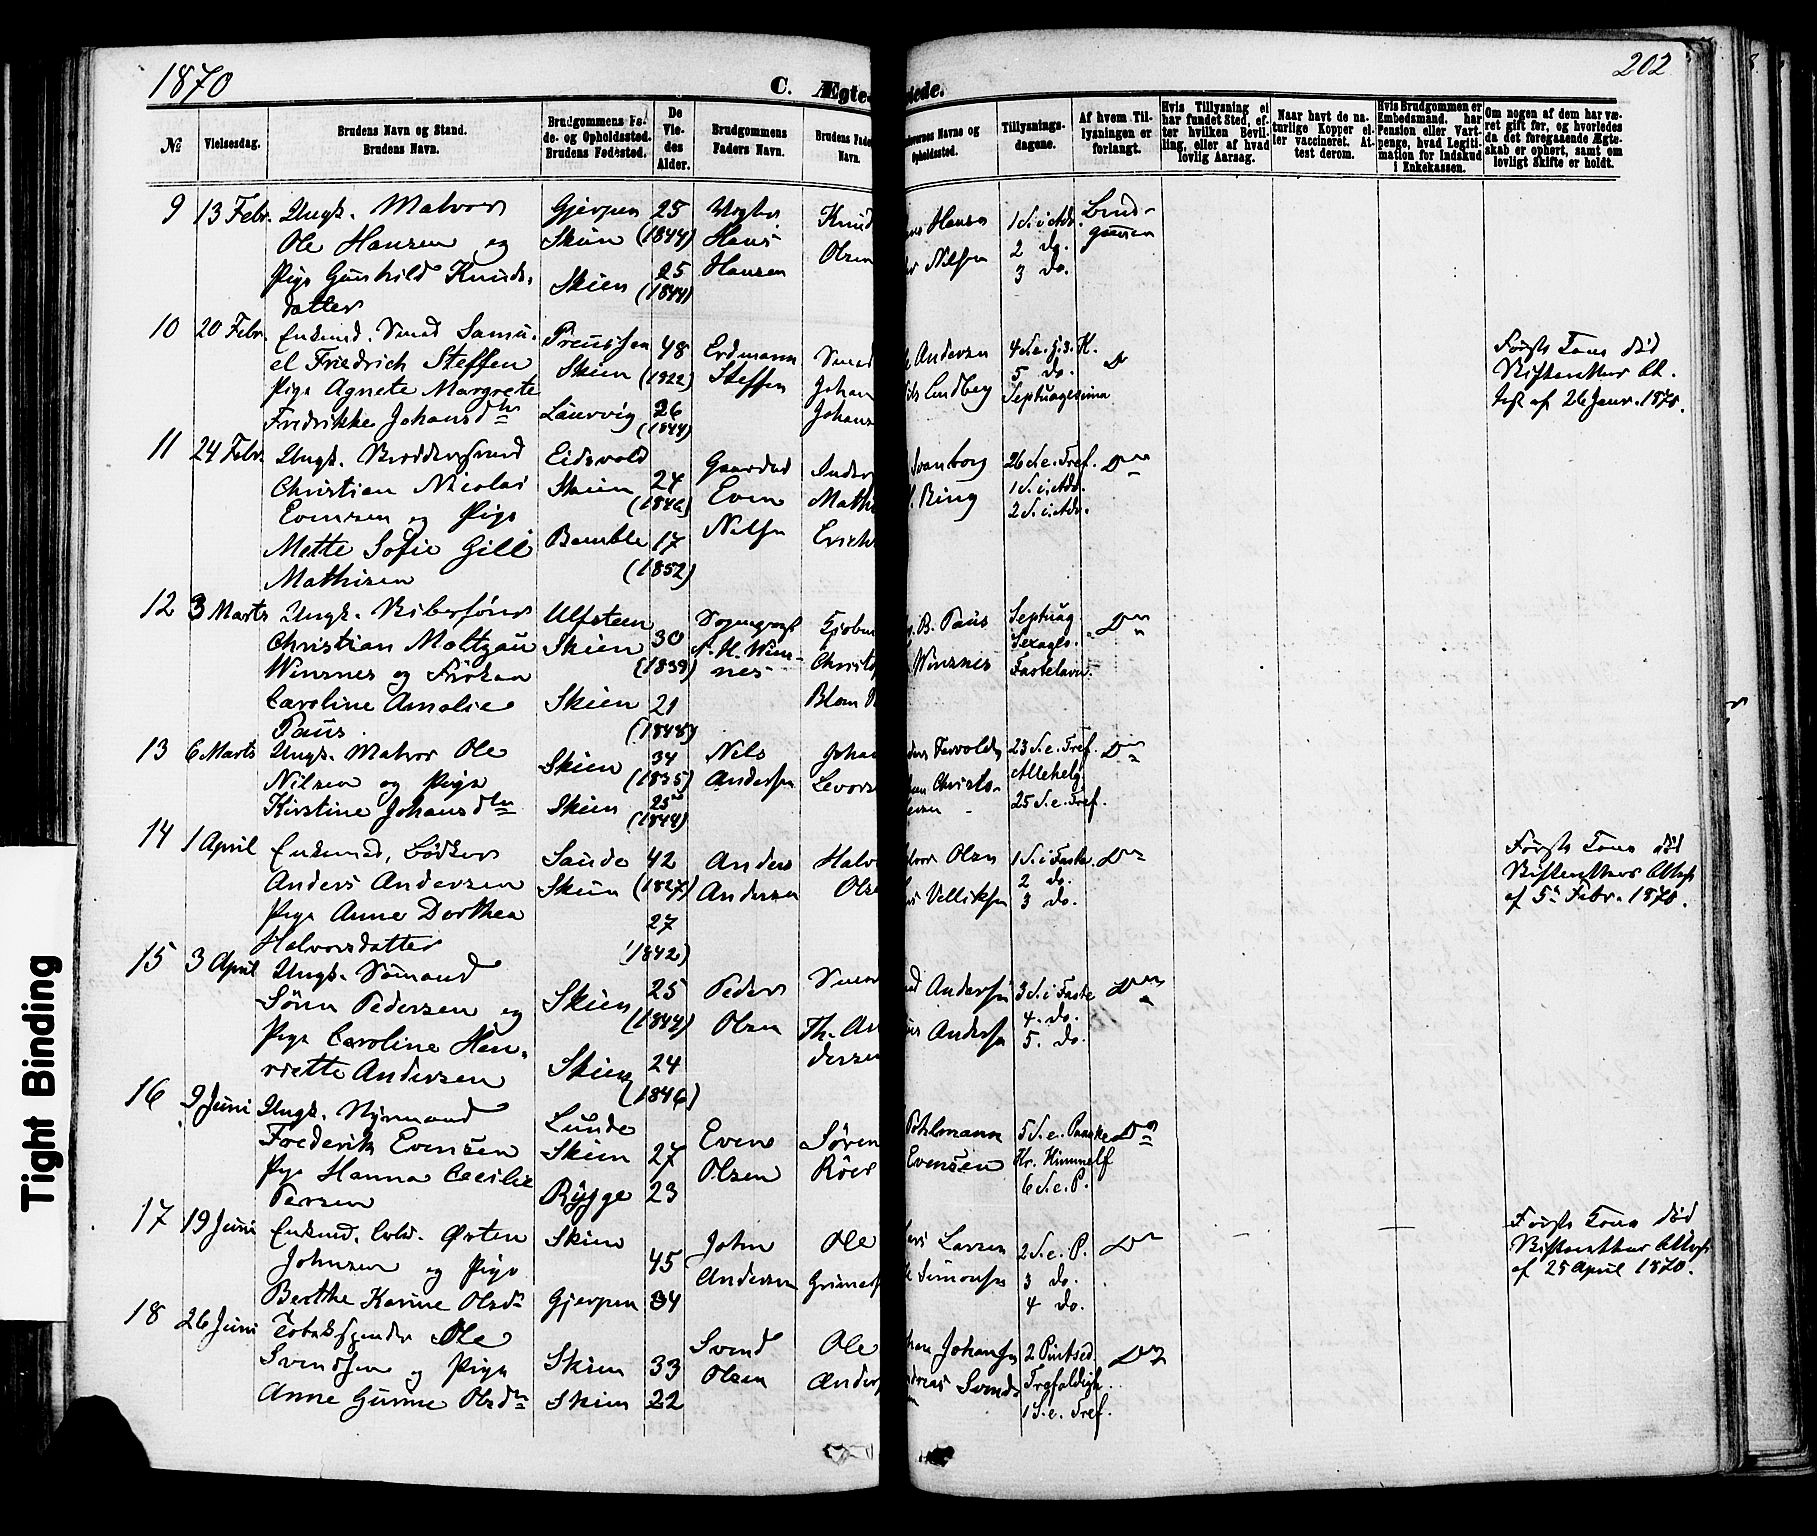 1870
C. Ægte
tede.
202
№
Vielsesdag.
Brudens Navn og Stand.
Brudens Navn.
Brudgommens Fø-
de- og Opholdssted.
Brudens Fødested.
De
Vie-
des
Alder.
Brudgommens
Faders Navn.
Brudens Fade
Navn.
overnes Navne og
Opholdssted.
Tillysnings-
dagene.
Af hvem Til-
lysningen er
forlangt.
Hvis Tillysning ei
har fundet Sted, ef-
ter hvilken Bevil-
ling, eller af hvad
lovlig Aarsag.
Naar havt de na-
turlige Kopper el-
ler vaccineret. At-
test derom.
Hvis Brudgommen er
Embedsmand, har
Pension eller Vart-
penge, hvad Legiti-
mation for Indskud
i Enkekassen.
Om nogen af dem har væ-
ret gift før, og hvorledes
da det foregaaende Ægte-
skab er ophørt, samt om
lovligt Skifte er holdt.
9 13 Febr. Ungk. Matros Gjerpen 25 Hans Knud Hansen 1 S. i Adv. Brud-
Ole Hansen og Skien (1844) Hansen Olsen Nilsen 2 do. gommen
Pige Gunhild Knuds- Skien 25 3 do.
datter (1844)
10 20 Febr. Enkemd. Smed Samu- Preussen 48 Erdmann Smed Andersen 4 S. e. H. 3. K. D Første Kone død
el Friedrich Steffen Skien (1822) Steffen Johan Lindberg 5 do. Skifterettens At-
Pige Agnete Margrete Septuagesima test af 26 Janr. 1870.
Fredrikke Johansdtr Laurvig 26 Johans
(1844)
11 24 Febr. Ungk. Eidsvold Gaardmd Anders Svanborg 26 S. e. Tref. Do
Christian Nicolai Skien 24 Even Mathi Ring 1 S. i Adv.
Evensen og Pige (1846) Nilsen 2 S. i Adv.
Mette Sofie Gill Bamble 17 Erich
Mathisen (1852)
12 3 Marts Ungk. Skibsfører Ulfsteen Sogneprest Kjøbm B. Paus Septuag Do
Christian Moltzau Skien 30 H. Wins- Christ Winsnes Sexages.
Winsnes og Frøken (1839) nes Fastelavn.
Caroline Amalie Skien 21 Blom
Paus. (1848)
13 6 Marts Ungk. Matros Ole Skien 34 Nils Johan 23 S. e. Tref. Do
Nilsen og Pige (1835) Andersen Levors Christo- Allehelg.
Kirstine Johansdtr Skien 25 25 S. e. Tref.
(1844)
14 1 April Enkemd, Bødker Saude 42 Anders Halv Olsen 1 S. i Faste Do Første Kone død
Anders Andersen Skien (1827) Andersen Olse 2 do. Skifterettens Attest
Pige Anne Dorthea 27 3 do. af 5te Febr. 1870.
Halvorsdatter (1842)
15 3 April Ungk. Sømand 25 Peder Andersen 3 S. i Faste Do
Søren Pedersen og Skien (1844) Olsen Th. An Andersen 4. do.
Pige Caroline Hen- 24 dersen 5. do.
riette Andersen Skien (1846)
16 9 Juni Ungk. Lunde Even Søren Pohlmann 5 S. e. Paaske Do
Frederik Evensen Skien 27 Olsen Røer Evensen Kr. Himmelf
Pige Hanna Cecilie 6 S. e. P.
Persen Rygge 23
17 19 Juni Enkemd. Østen Skien John Ole Larsen 2 S. e. P. Do Første Kone død
Johnsen og Pige 45 Andersen Simonsen 3 do. Skifterettens Attest
Berthe Karine Olsdr Gjerpen 34 4 do. af 25 April 1870.
18 26 Juni Tobakspinder Ole Svend Ole Johansen 2 Pintsed Do
Svendsen og Pige Skien 33 Olsen Anders Svends Trefoldigh.
Anne Gurine Olsdtr Skien 22 1 S. e. Tref.
Tight Binding